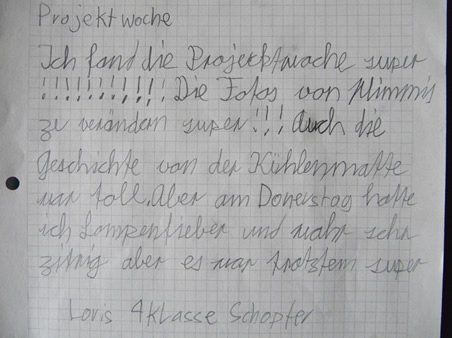 Projektwoche
Ich fand die Projektwoche super
!!!!!!!!!!! Die Fotos von Mimmis
zu verändern super!!! Auch die
Geschichte von der Kühlenmatte
war toll. Aber am Donerstag hatte
ich Lampenfieber und wahr sehr
zittrig aber es war trotztem super
Loris 4Klasse Schopfer